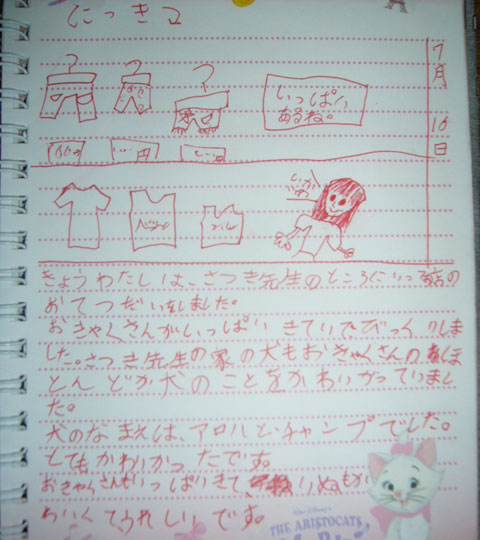 にっき
7月
10日
いっぱい
あるね。
円
きょうわたしは、さつき先生のところにいって店の
おてつだいをしました。
おきゃくさんがいっぱいきていてびっくりしま
した。さつき先生の家の犬もおきゃくさんのほ
とんどが犬のことをかわいがっていまし
た。
犬のなまえは、アロハとチャンプでした。
とてもかわいかったです。
おきゃくさんもいっぱいきて、いぬもか
わいくてうれしいです。
THE ARISTOCATS